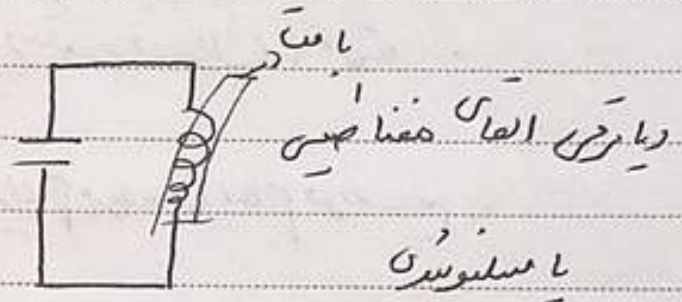 بافت
دیاترمی القای مغناطیسی
یا سلنوئیدی